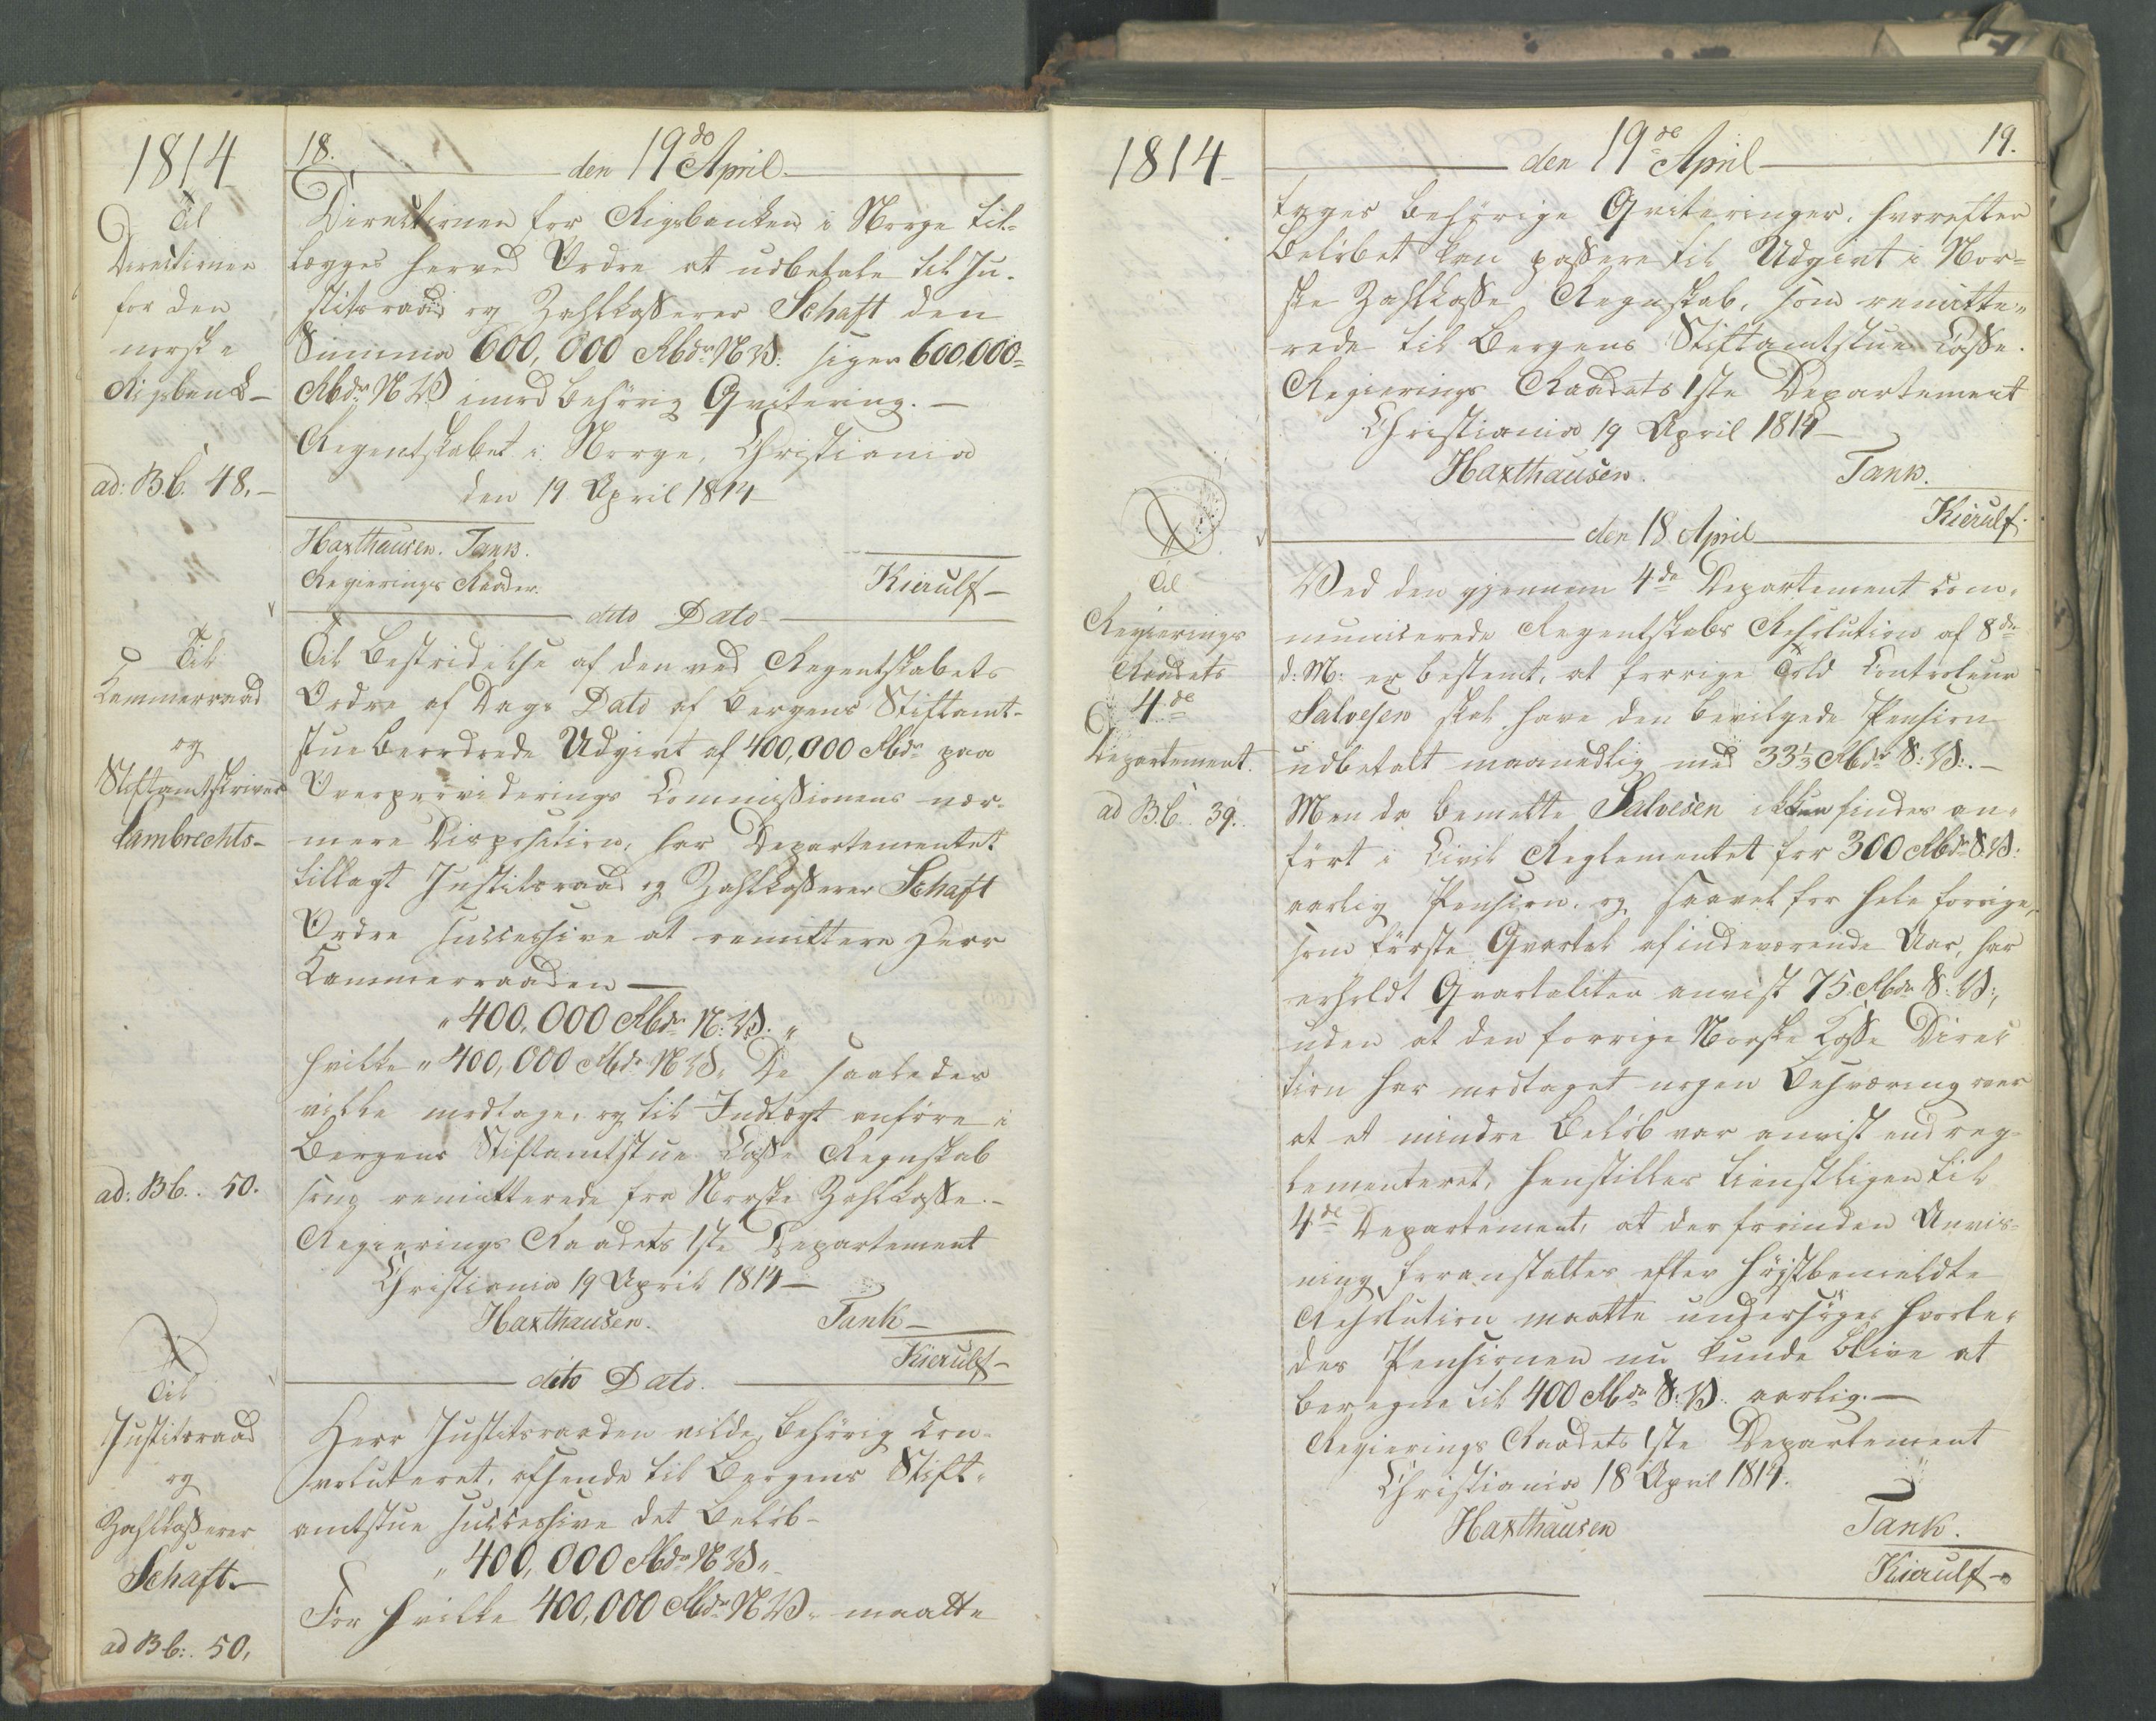 1814
Til
Directionen
for den
norske
Rigsbank -
ad: B.b. 48. -
Til
Kammerraad
og
Stiftamtskriver
Lambrechts -
ad: B.b. 50.
Til
Justitsraad
og
Zahlkasserer
Schaft. -
ad B.b: 50.
18.
den 19de April.
Directionen for Rigsbanken i Norge til-
lægges herved Ordre at udbetale til Ju-
stitsraad og Zahlkasserer Schaft den
Summa 600,000 Rbdr N.V: siger 600,000=
Rbdr N.V. imod behørig Qvitering. -
Regentskabet i Norge, Christiania
den 19 April 1814
Haxthausen. Tank.
Regierings Raader.
Kierulf -
dito Dato
Til Bestridelse af den ved Regentskabets
Ordre af Dags Dato af Bergens Stiftamt-
stue beordrede Udgivt af 400,000 Rbdr paa
Overproviderings Commissionens nær-
mere Disposition, har Departementet
tillagt Justitsraad og Zahlkasserer Schaft
Ordre successive at remittere Herr
Kammerraaden -
" 400,000 Rbdr N:V. "
hvilke " 400,000 Rbdr N.V. De saaledes
vilde modtage, og til Indtægt anføre i
Bergens Stiftamtstue Casse Regnskab
som remitterede fra Norske Zahlkasse. -
Regierings Raadets 1ste Departement
Christiania 19 April 1814 -
Haxthausen. Tank -
Kierulf -
dito Dato.
Herr Justitsraaden vilde, behørig con-
voluteret, afsende til Bergens Stift-
amtstue successive det Beløb -
" 400,000 Rbdr N.V. "
For hvilke 400,000 Rbdr N.V. maatte
1814
Til
Regierings
Raadets
4de
Departement.
ad B.b. 39.
19.
den 19de April
tages behørige Qviteringer, hvorefter
Beløbet kan passere til Udgivt i Nor-
ske Zahlkasse Regnskab, som remitte-
rede til Bergens Stiftamtstue Casse.
Regierings Raadets 1ste Departement
Christiania 19 April 1814 -
Haxthausen. Tank.
Kierulf.
den 18 April
Ved den gjennem 4de Departement com-
municerede Regentskabs Resolution af 8de
d: M: er bestemt, at forrige Told Controleur
Salvesen skal have den bevilgede Pension
udbetalt maanedlig med 33 1/3 Rbdr S:V:. -
Men da bemelte Salvesen ikkun findes an-
ført i Civil Reglementet for 300 Rbdr S.V:
aarlig Pension, og saavel for hele forrige,
som første Qvartal af indeværende Aar, har
erholdt Qvartaliter anvist 75 Rbdr S:V:,
uden at den forrige Norske Casse Direc
tion har modtaget nogen Besværing over
at et mindre Beløb var anvist end reg-
lementeret, henstilles tienstligen til
4de Departement, at der forinden Anvis-
ning foranstaltes efter høistbemeldte
Resolution maatte undersøges hvorle-
des Pensionen nu kunde blive at
beregne til 400 Rbdr S:V: aarlig. -
Regierings Raadets 1ste Departement
Christiania 18 April 1814.
Haxthausen Tank.
Kierulf -